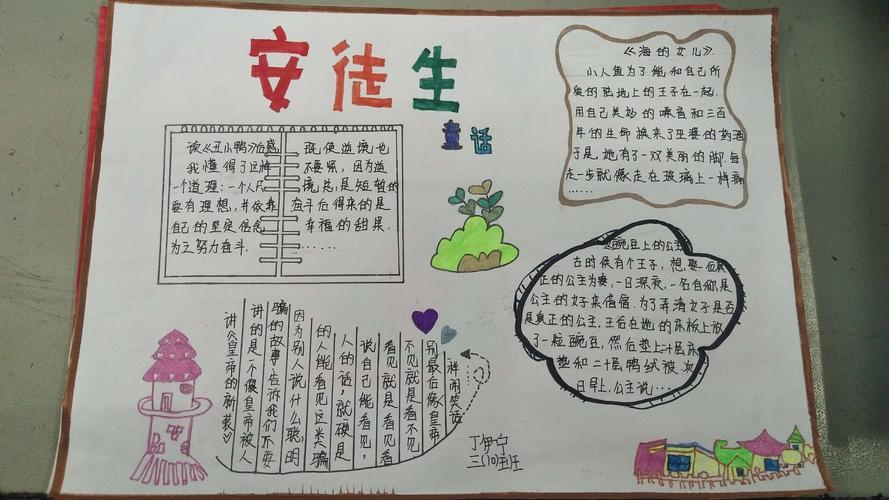 安徒生
童话
读《丑小鸭》后感
我懂得了这样
一个道理:一个人只
要有理想,并依靠
自己的坚定信念
为之努力奋斗.
既使逆境也
不要紧,因为逆
境总是短暂的
奋斗后得来的是
幸福的甜果.
......
《海的女儿》
小人鱼为了能和自己所
爱的陆地上的王子在一起.
用自己美妙的嗓音和三百
年的生命换来了巫婆的药酒
于是,她有了一双美丽的脚,每
走一步就像走在玻璃上一样
......
《豌豆上的公主》
古时候有个王子,想娶一位真
正的公主为妻,一日深夜,一名自称是
公主的女子来借宿.为了弄清女子是否
是真正的公主,王后在她的床板上放
了一粒豌豆,然后垫上二十层床
垫和二十层鸭绒被.次
日早上,公主说....
讲《皇帝的新装》
讲的是一个傻皇帝被人
骗的故事告诉我们不要
因为别人说什么聪明
的人能看见这类骗
人的话,就硬是
说自己能看见,
看见就是看看
不见就是看不见
别最后像皇帝
一样闹笑话
安
丁伊宁
三(10)班